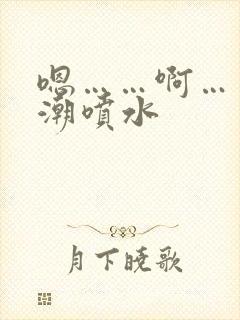 嗯……啊…
潮噴水
月下曉歌